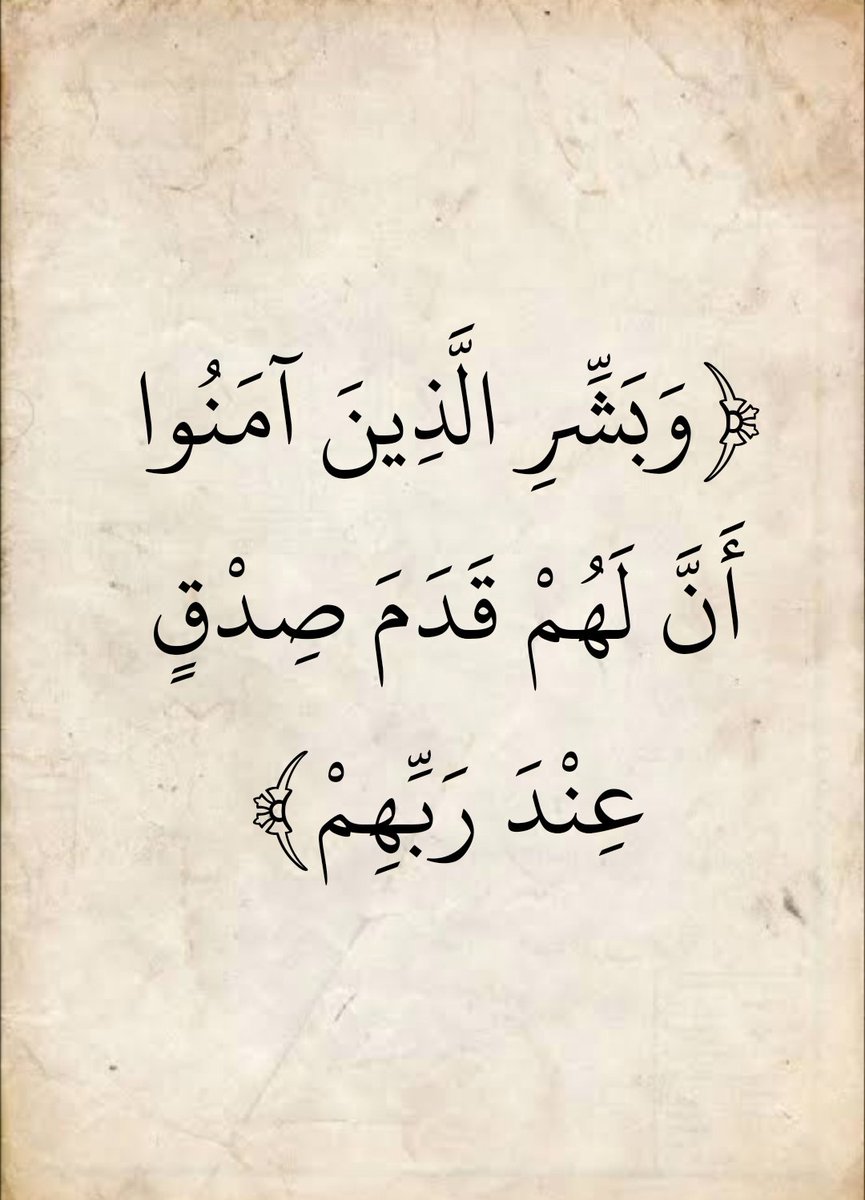 ﴿وَبَشِّرِ الَّذِينَ آمَنُوا
أَنَّ لَهُمْ قَدَمَ صِدْقٍ
عِنْدَ رَبِّهِمْ﴾